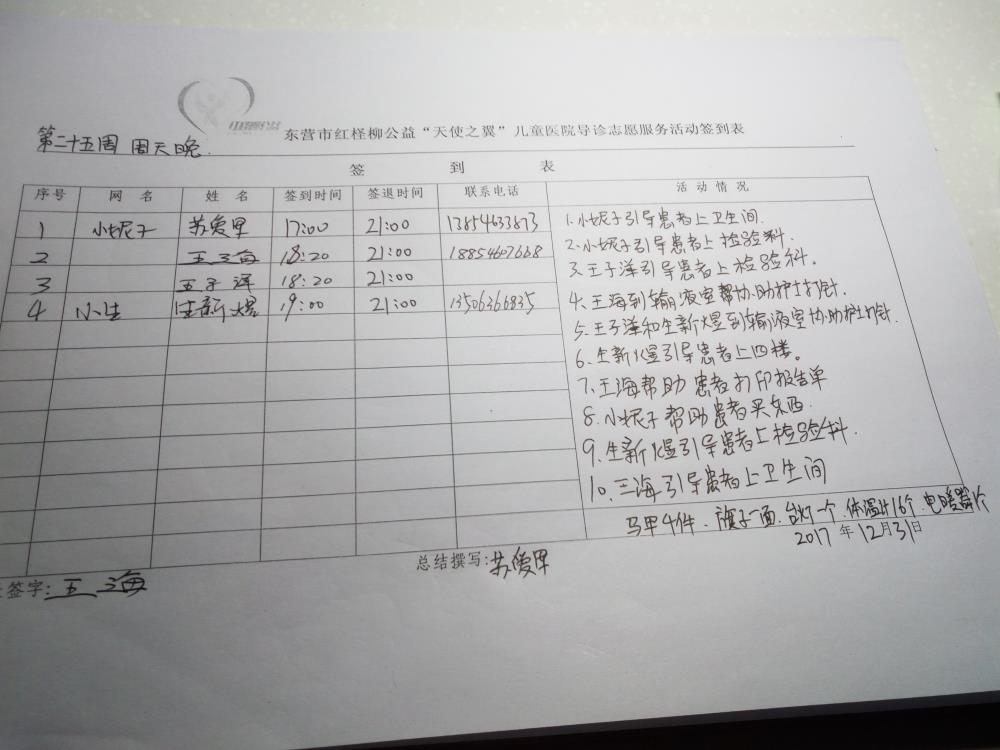 东营市红柽柳公益“天使之翼”儿童医院导诊志愿服务活动签到表
第二十五周 周天晚
签 到 表
序号 网 名 姓 名 签到时间 签退时间 联系电话 活动情况
1 小妮子 苏爱里 17:00 21:00 13854633873
2 王海 18:20 21:00 18854607668
3 王子洋 18:20 21:00
4 小生 生新煜 19:00 21:00 13506366835
1.小妮子引导患者上卫生间.
2.小妮子引导患者上检验科.
3.王子洋引导患者上检验科。
4.王海到输液室帮协助护士打针.
5.王子洋和生新煜到输液室协助护士打针.
6.生新煜引导患者上四楼。
7.王海帮助患者打印报告单
8.小妮子帮助患者买东西.
9.生新煜引导患者上检验科.
10.王海引导患者上卫生间
马甲4件、旗子一面、台灯一个、体温计16个、电暖器1个
2017年12月31日
总结撰写:苏爱里
签字:王海